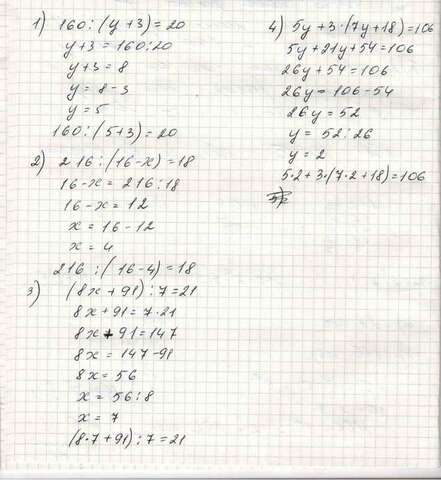 1) 160:(y+3)=20
y+3=160:20
y+3=8
y=8-3
y=5
160:(5+3)=20
2) 216:(16-x)=18
16-x=216:18
16-x=12
x=16-12
x=4
216:(16-4)=18
3) (8x+91):7=21
8x+91=7·21
8x+91=147
8x=147-91
8x=56
x=56:8
x=7
(8·7+91):7=21
4) 5y+3·(7y+18)=106
5y+21y+54=106
26y+54=106
26y=106-54
26y=52
y=52:26
y=2
5·2+3·(7·2+18)=106